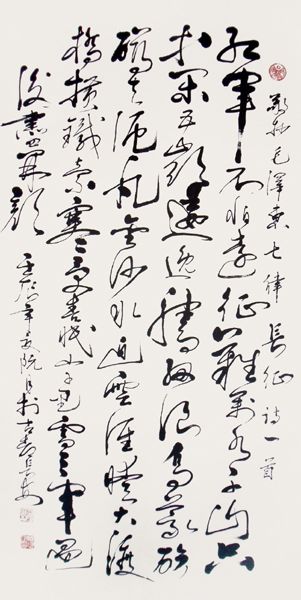 敬録毛澤東七律長征詩一首
紅軍不怕遠征難萬水千山只
等閑五嶺逶迤騰細浪烏蒙磅
礴走泥丸金沙水拍雲崖暖大渡
橋橫鐵索寒更喜岷山千里雪三軍過
後盡開顏
壬辰年 於古都長安